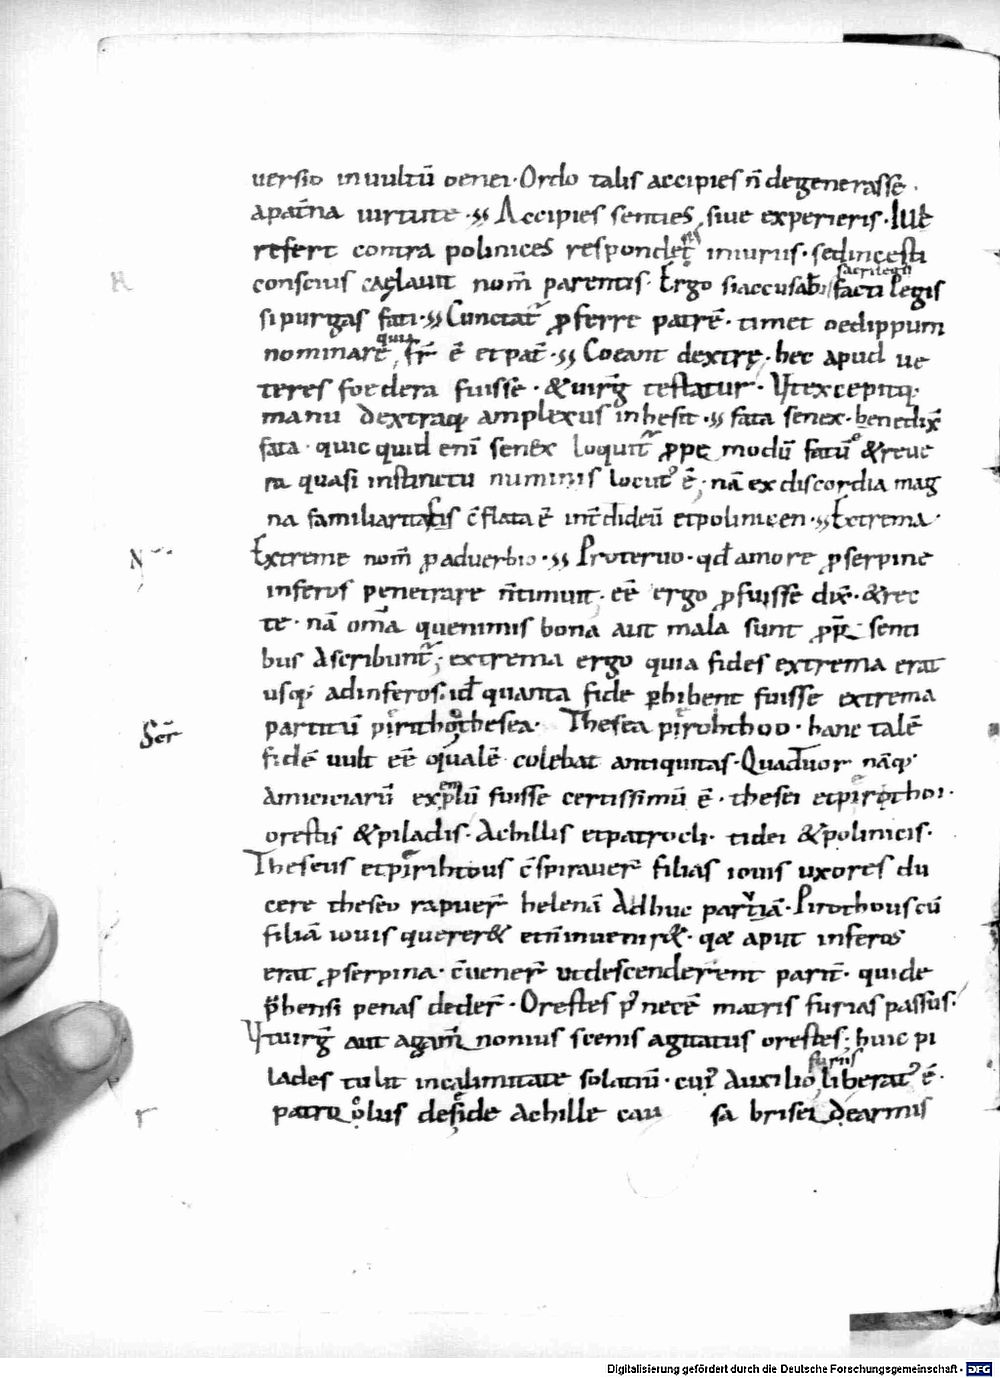 uersio inuultū oenei · Ordo talis accipies n̄ degenerasse ·
apat̄na uirtute · Accipies senties siue experieris · Iub̄
refert contra polinices respondet iniurus · sed incesti
conscius caelauit nom̄ parentis · Ergo siaccusab̄ facti legis
sacrilegii
si purgas fati · Cunctat̄ p̄ferre patrē · timet oedippum
quia
nominare fr̄ ē et pat̄ · Coeant dextrę · hec apud ue
teres foedera fuisse · & uirḡ testatur · Vt excepitq;
manu dextraq; amplexus inhesit · fata senex · benedix̄
fata · quic quid enī senex loquit̄ ꝓpe modū fatū ē & reue
ra quasi instinctu numinis locut' ē ; nā ex discordia mag
na familiaritatis c̄flata ē int̄ dideū et polinicen · Extrema ·
N
Extreme nom̄ p̄ aduerbio · Proteruo · qd̄ amore ꝓserpine
inferos penetrare n̄ timuit · eē ergo ꝓfuisse dix̄ · & rec
te · nā om̄a que nimis bona aut mala sunt senti
bus Ascribunt̄ ; extrema ergo quia fides extrema erat
usq; ad inferos · id̄ quanta fide ꝑhibent fuisse extrema
Ser̄
partitū pirithoo thesea · Thesea pirohthoo · hanc talē
fidē uult eē q̄ualē colebat antiquitas · Quatuor nāq;
Amiciciarū exēplū fuisse certissimū ē · thesei et pirothoi ·
orestis & piladis · Achillis et patrocli · tidei & polinicis ·
Theseus et pirihtous c̄spirauer̄ filias iouis uxores du
cere theseo rapuer̄ helenā Adhuc paruā · Pirothous cū
filiā iouis querer& et n̄ inuenir& · que aput inferos
erat ꝓserpina · c̄uener̄ ut descenderent parit̄ · qui de
p̄hensi penas deder̄ · Orestes p' necē matris furias passus ·
Vt uirḡ aut agam̄nonius scenis agitatus orestes ; huic pi
furiis
lades tulit in calimitate solatiū · cui' Auxilio liberat' ē ·
patroclus deside Achille cau sa brisei dearmis
Digitalisierung gefördert durch die Deutsche Forschungsgemeinschaft - DFG